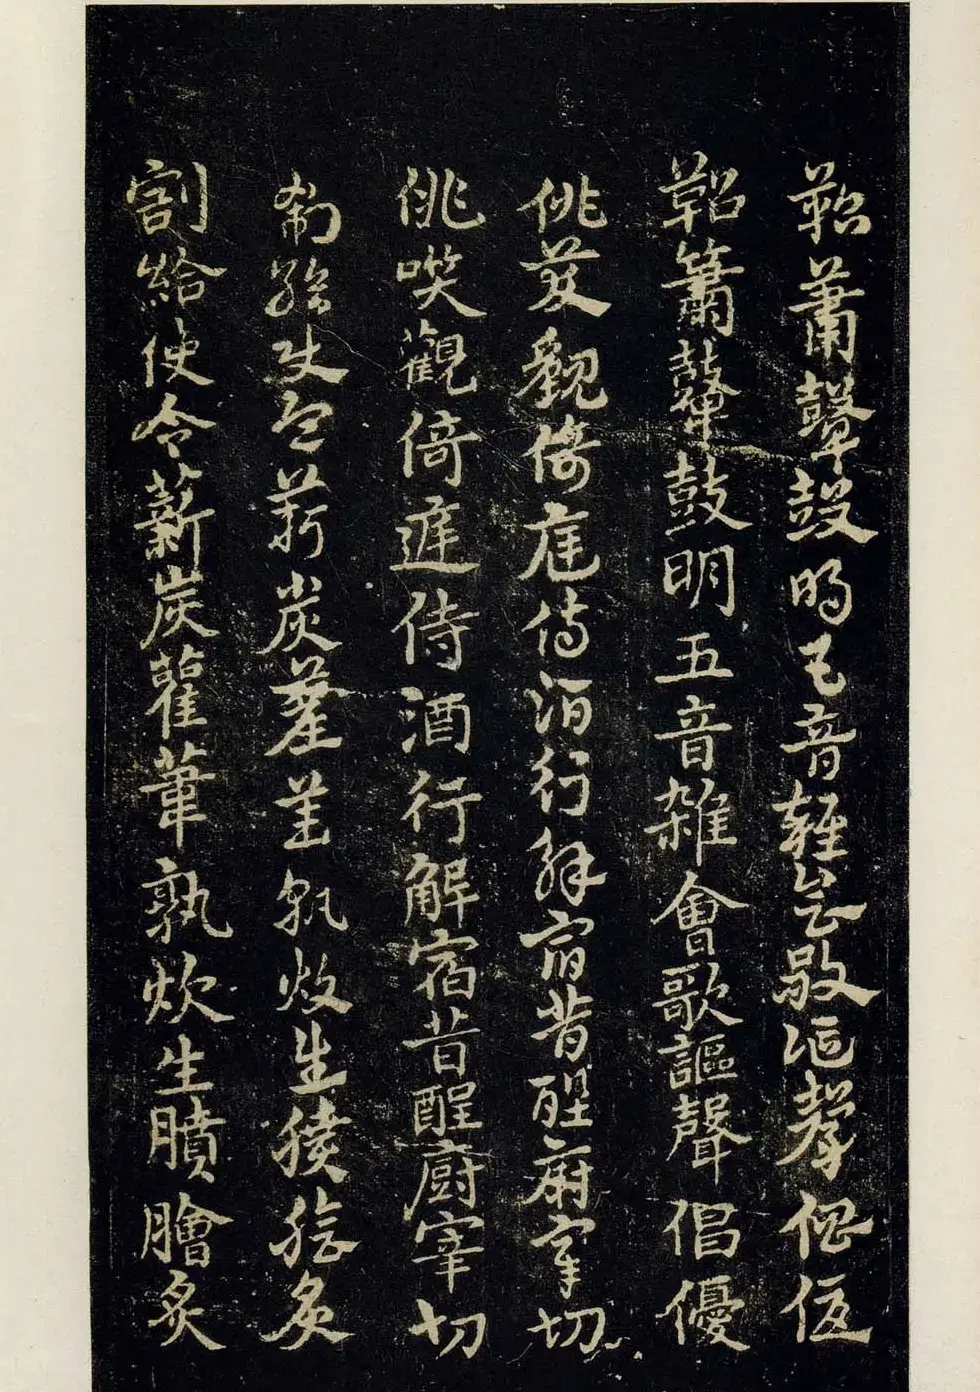 鞀簫鼙鼓明五音雜會歌謳聲倡優
鞀簫鼙鼓明五音雜會歌謳聲倡優
佻笑觀倚庭侍酒行解宿昔酲廚宰切
佻咲觀倚庭侍酒行解宿昔酲廚宰切
割給使令薪炭雚葦孰炊生膹膾炙
割給使令薪炭雚葦孰炊生膹膾炙